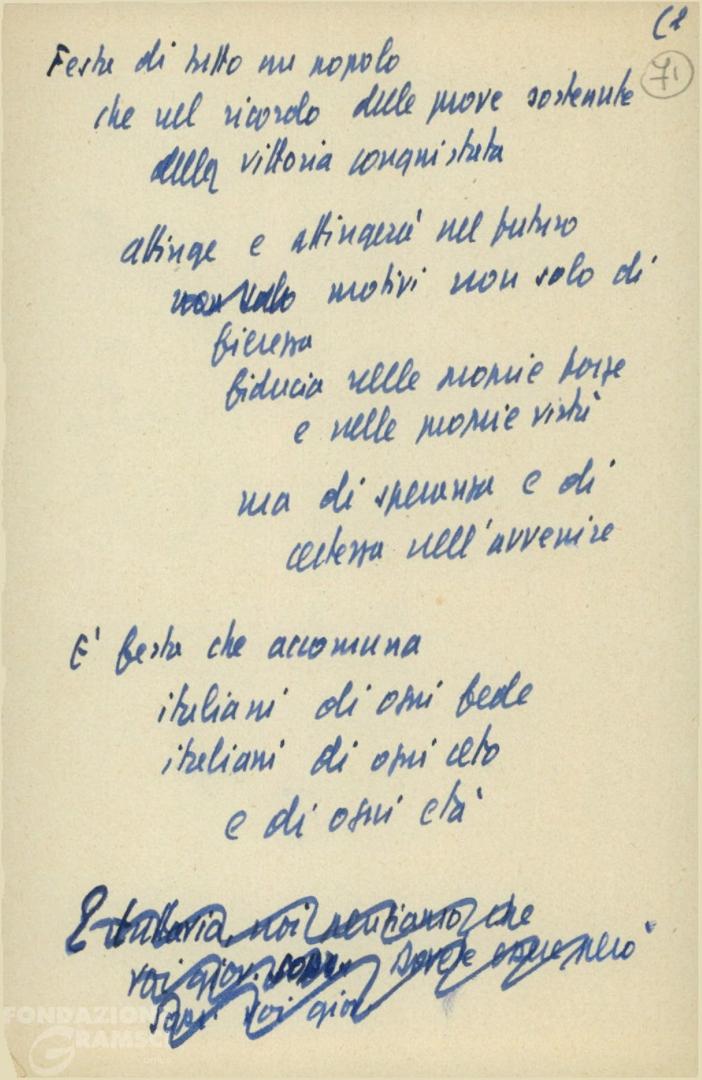 (2
71
Festa di tutto un popolo
che nel ricordo delle prove sostenute
della vittoria conquistata
attinge e attingerà nel futuro
non solo motivi non solo di
fierezza
fiducia nelle proprie forze
e nelle proprie virtù
ma di speranza e di
certezza nell'avvenire
E' festa che accomuna
italiani di ogni fede
italiani di ogni ceto
e di ogni età
E tuttavia, noi sentiamo che
voi giov. dovete essere però
voi giov.
FONDAZIONE
GRAMSCI